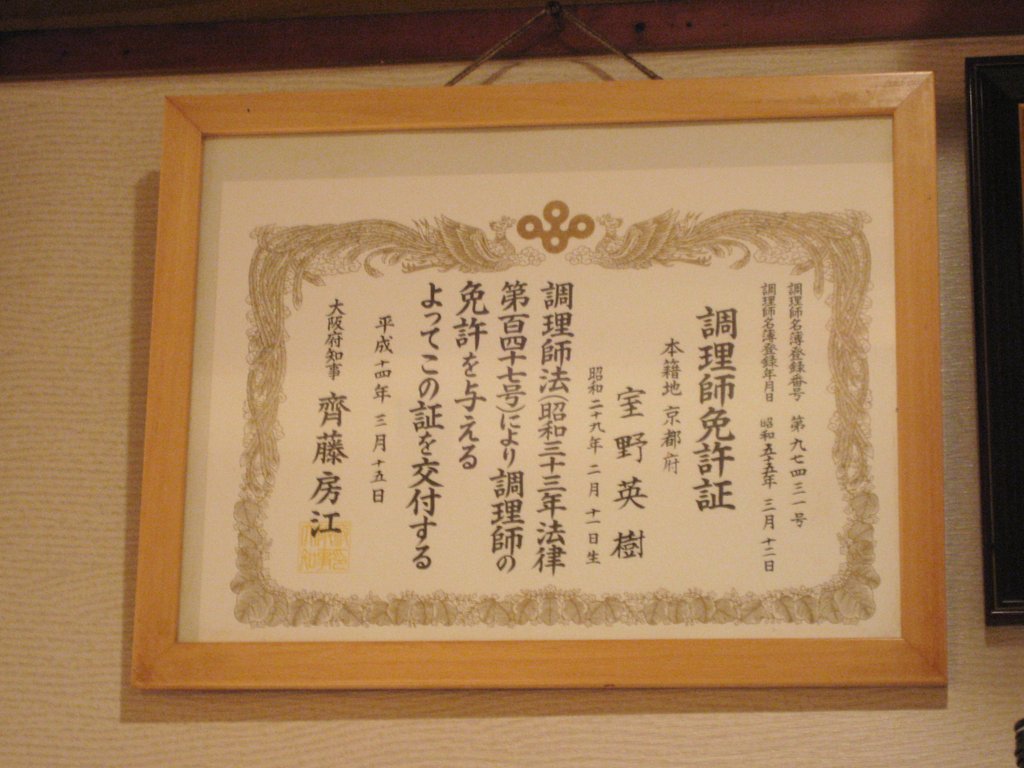 調理師名簿登録番号 第九七四三一号
調理師名簿登録年月日 昭和五十五年 三月 十二日
調理師免許証
本籍地 京都府
室野英樹
昭和二十九年 二月 十一日生
調理師法(昭和三十三年法律
第百四十七号)により調理師の
免許を与える
よってこの証を交付する
平成十四年 三月 十五日
大阪府知事 齊藤房江